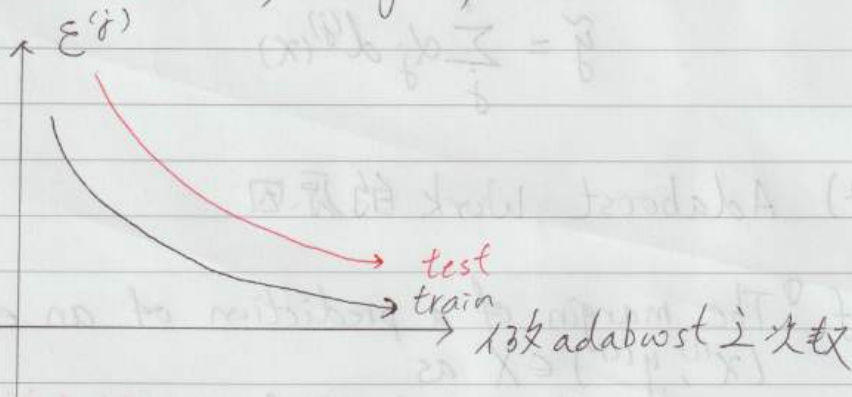 ε^(j)
test
train
做adaboost之次数